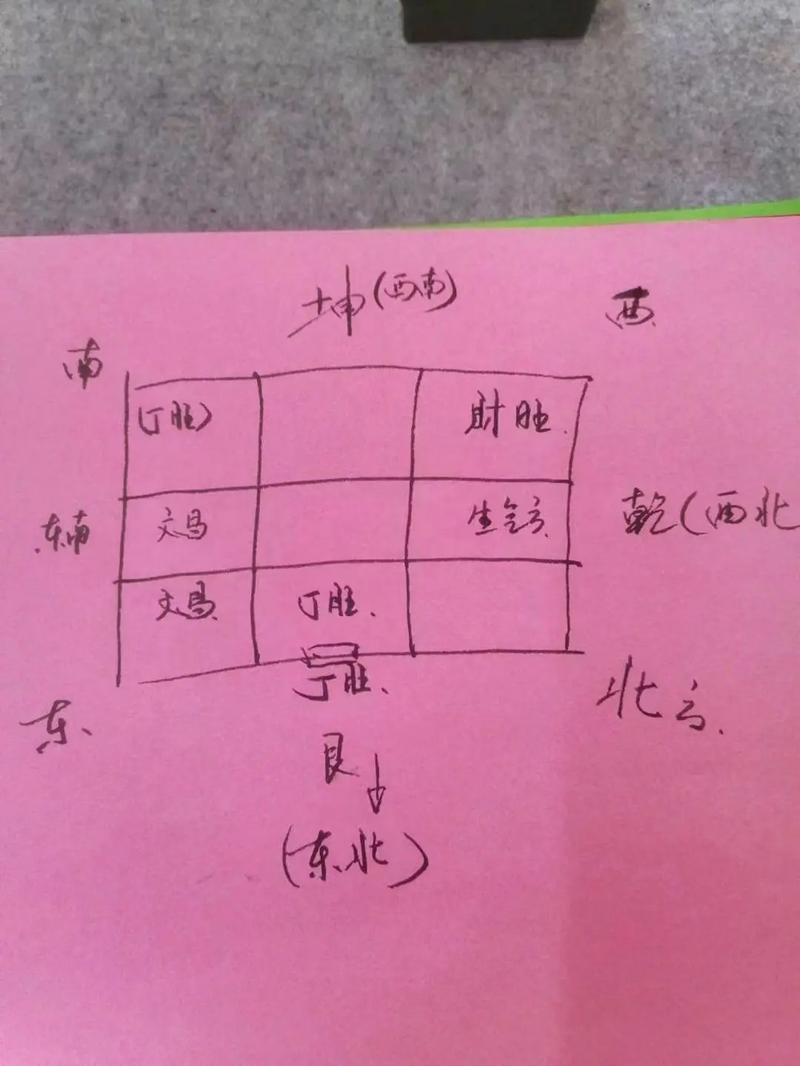 坤(西南)
西
南
(丁旺) 财旺.
东南 文昌 生气方 乾(西北
文昌 丁旺.
丁旺.
东. 北方.
艮
(东北)